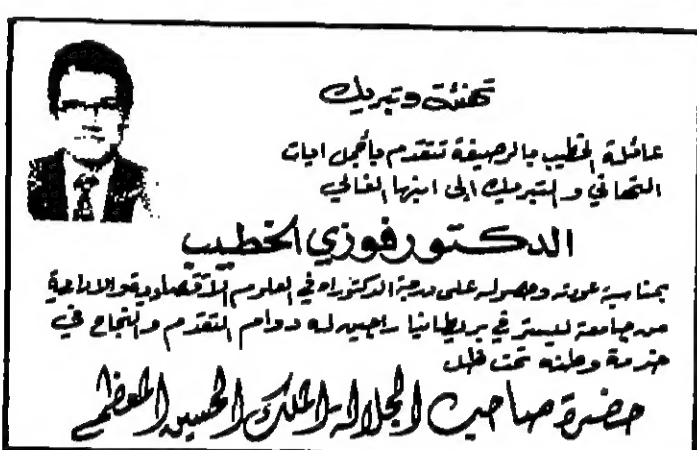 تهنئة وتبريك
عائلة الخطيب بالرصيفة تتقدم بأجمل ايات
التهاني و التبريك الى ابنها الغالي
الدكتور فوزي الخطيب
بمناسبة عودته وحصوله على درجة الدكتوراه في العلوم الاقتصادية والادارية
من جامعة ليستر في بريطانيا راجين له دوام التقدم والنجاح في
خدمة وطنه تحت ظل
حضرة صاحب الجلالة الملك الحسين المعظم